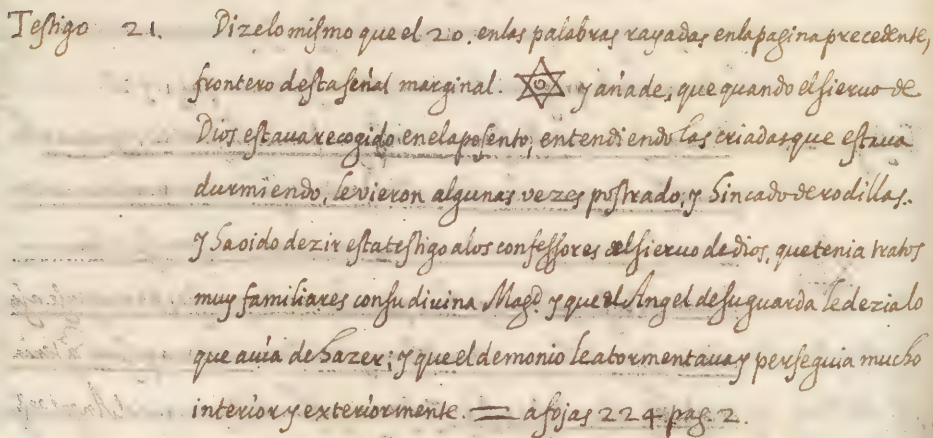 Testigo 21. Dizelo mismo que el 20. en las palabras rayadas en la pagina precedente,
frontero desta señal marginal. ✡ y añade, que quando el sieruo de
Dios estaua recogido en el aposento, entendiendo las criadas que estaua
durmiendo, le vieron algunas vezes postrado, y hincado de rodillas.
y ha oido dezir esta testigo a los confessores del sieruo de dios, que tenia tratos
muy familiares con su divina Magd. y que el Angel de su guarda le dezia lo
que auia de hazer; y que el demonio le atormentaua y perseguia mucho
interior y exteriormente. = a fojas 224 pag 2.